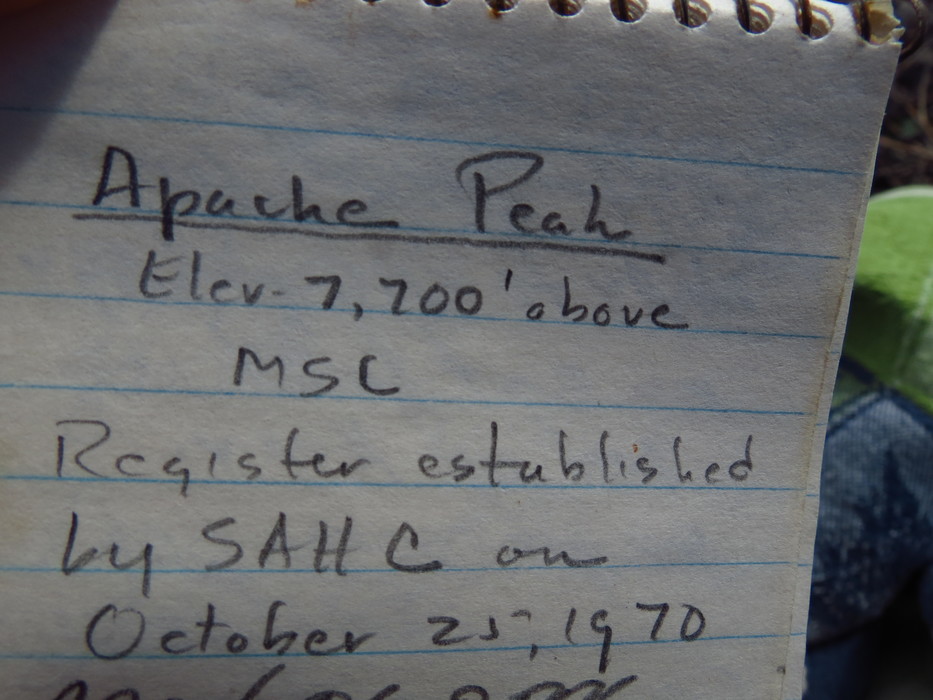 Apache Peak
Elev. 7,700' above
MSC
Register established
by SAHC on
October 25, 1970